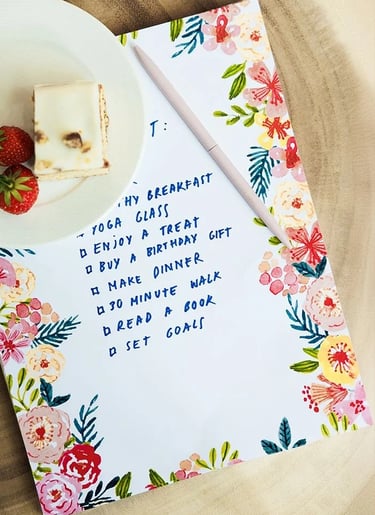 T:
THY BREAKFAST
YOGA CLASS
ENJOY A TREAT
BUY A BIRTHDAY GIFT
MAKE DINNER
30 MINUTE WALK
READ A BOOK
SET GOALS